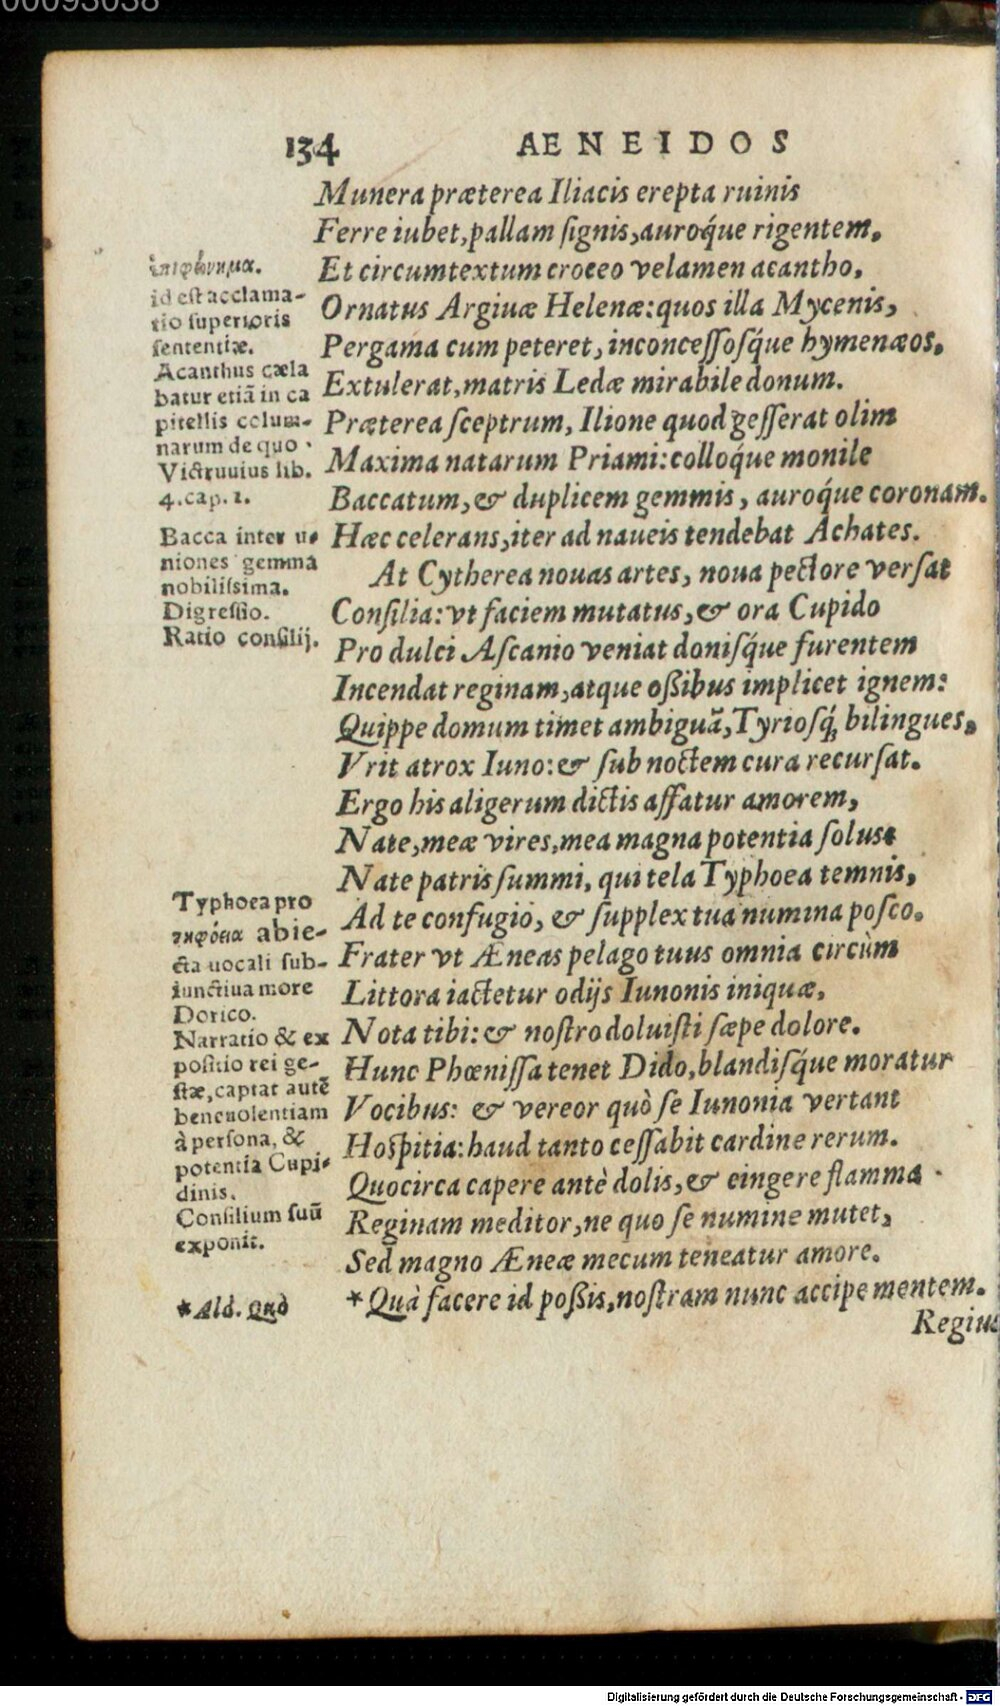 00093038
134 AENEIDOS
Munera præterea Iliacis erepta ruinis
Ferre iubet, pallam ſignis, auroq́ue rigentem.
Et circumtextum croceo velamen acantho,
Ornatus Argiuæ Helenæ: quos illa Mycenis,
Pergama cum peteret, inconceſſoſq́ue hymenæos,
Extulerat, matris Ledæ mirabile donum.
Præterea ſceptrum, Ilione quod geſſerat olim
Maxima natarum Priami: colloq́ue monile
Baccatum, & duplicem gemmis, auroq́ue coronam.
Hæc celerans, iter ad naueis tendebat Achates.
At Cytherea nouas artes, noua pectore verſat
Conſilia: vt faciem mutatus, & ora Cupido
Pro dulci Aſcanio veniat doniſq́ue furentem
Incendat reginam, atque oßibus implicet ignem:
Quippe domum timet ambiguā, Tyrioſq́, bilingues,
Vrit atrox Iuno: & ſub noctem cura recurſat.
Ergo his aligerum dictis affatur amorem,
Nate, meæ vires, mea magna potentia ſolus:
Nate patris ſummi, qui tela Typhoea temnis,
Ad te confugio, & ſupplex tua numina poſco.
Frater vt Æneas pelago tuus omnia circùm
Littora iactetur odijs Iunonis iniquæ,
Nota tibi: & noſtro doluiſti ſæpe dolore.
Hunc Phœniſſa tenet Dido, blandiſq́ue moratur
Vocibus: & vereor quò ſe Iunonia vertant
Hoſpitia: haud tanto ceſſabit cardine rerum.
Quocirca capere antè dolis, & cingere flamma
Reginam meditor, ne quo ſe numine mutet,
Sed magno Æneæ mecum teneatur amore.
*Quà facere id poßis, noſtram nunc accipe mentem.
Regius
ἐπιφώνημα.
id eſt acclama-
tio ſuperioris
ſententiæ.
Acanthus cæla
batur etiā in ca
pitellis colum-
narum de quo
Victruuius lib.
4. cap. 1.
Bacca inter u-
niones gemma
nobiliſsima.
Digreſſio.
Ratio conſilij.
Typhoea pro
τυφόεια abie-
cta uocali ſub-
iunctiua more
Dorico.
Narratio & ex
poſitio rei ge-
ſtæ, captat autē
beneuolentiam
à perſona, &
potentia Cupi-
dinis.
Conſilium ſuū
exponit.
*Ald. Quò
Digitalisierung gefördert durch die Deutsche Forschungsgemeinschaft - DFG